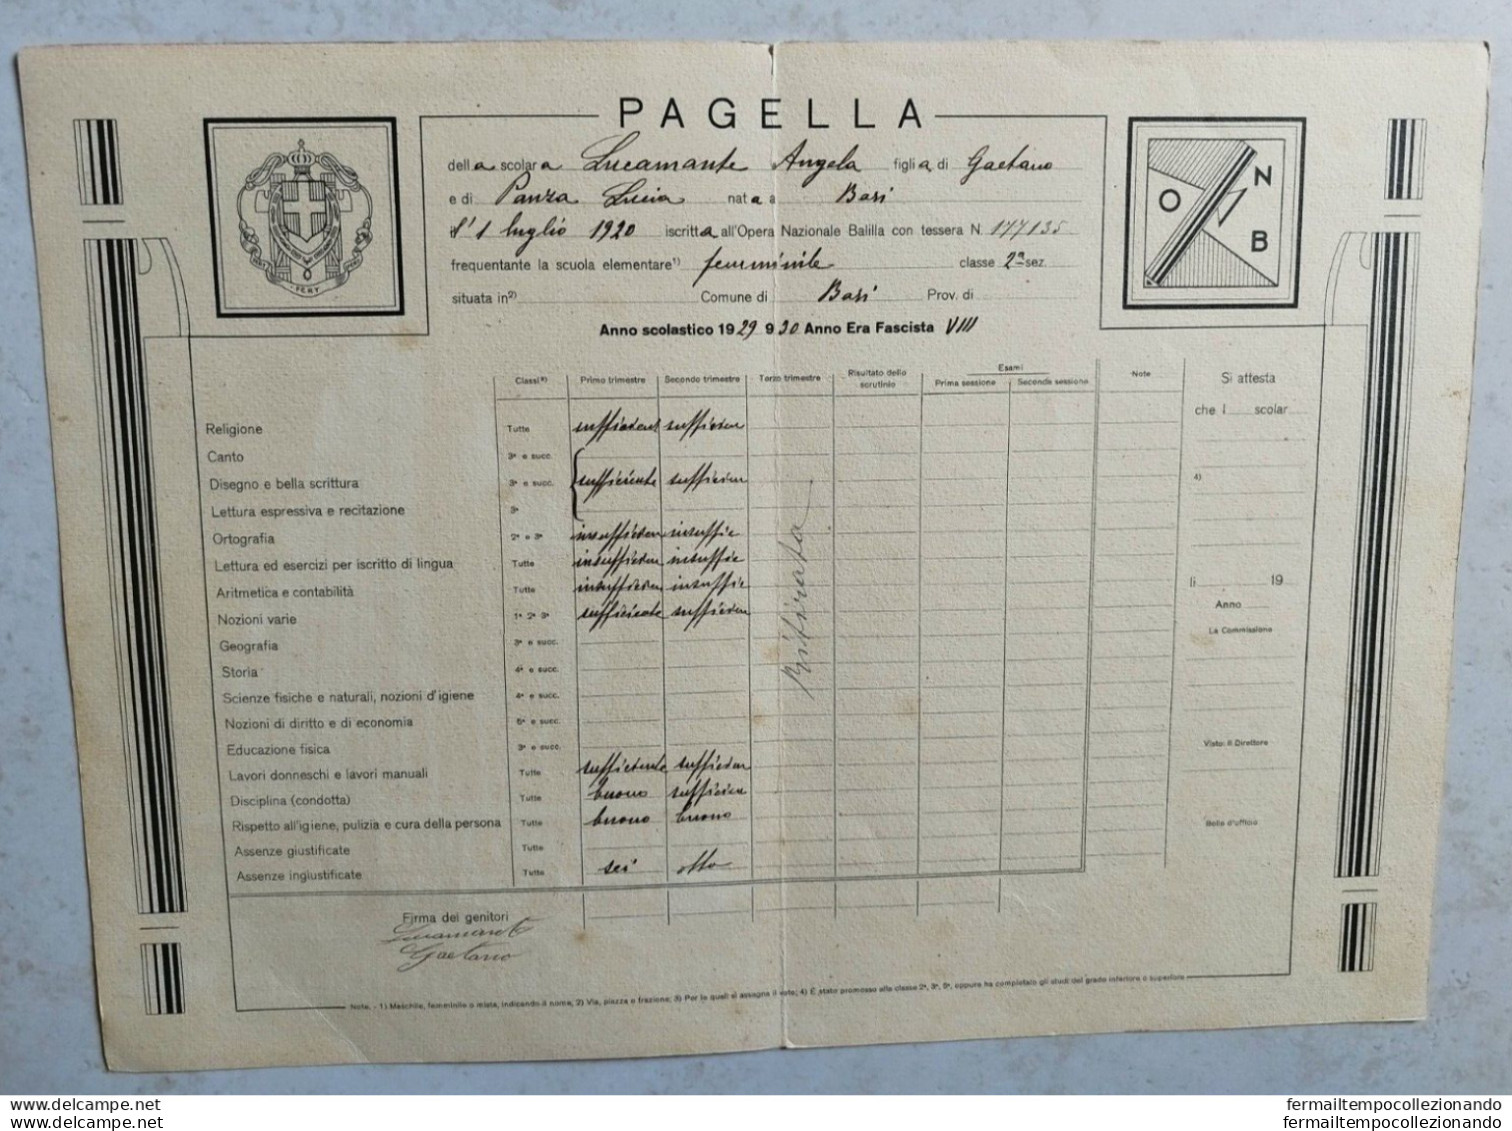 PAGELLA
della scolara Lucamante Angela figlia di Gaetano
e di Panza Lucia nata a Bari
l'1 luglio 1920 iscritta all'Opera Nazionale Balilla con tessera N. 177135
frequentante la scuola elementare1) femminile classe 2a sez.
situata in2) Comune di Bari Prov. di
Anno scolastico 1929 930 Anno Era Fascista VIII
FERT
O N B
Classi3) Primo trimestre Secondo trimestre Terzo trimestre Risultato dello scrutinio Esami Prima sessione Seconda sessione Note
Religione Tutte sufficiente sufficien
Canto 3a e succ.
Disegno e bella scrittura 3a e succ. sufficiente sufficien
Lettura espressiva e recitazione 3a
Ortografia 2a e 3a insufficien insuffic
Lettura ed esercizi per iscritto di lingua Tutte insufficien insuffic
Aritmetica e contabilità Tutte insufficien insuffic
Nozioni varie 1a 2a 3a sufficiente sufficien
Geografia 3a e succ.
Storia 4a e succ.
Scienze fisiche e naturali, nozioni d'igiene 4a e succ.
Nozioni di diritto e di economia 5a e succ.
Educazione fisica 3a e succ.
Lavori donneschi e lavori manuali Tutte sufficiente sufficien
Disciplina (condotta) Tutte buono sufficien
Rispetto all'igiene, pulizia e cura della persona Tutte buono buono
Assenze giustificate Tutte
Assenze ingiustificate Tutte sei otto
Ritirata
Firma dei genitori
Lucamante
Gaetano
Si attesta
che l scolar
4)
lì 19
Anno
La Commissione
Visto: Il Direttore
Bollo d'ufficio
Note. - 1) Maschile, femminile o mista, indicando il nome; 2) Via, piazza o frazione; 3) Per le quali si assegna il voto; 4) È stato promosso alla classe 2a, 3a, 5a, oppure ha completato gli studi del grado inferiore o superiore
www.delcampe.net
www.delcampe.net
fermailtempocollezionando
fermailtempocollezionando